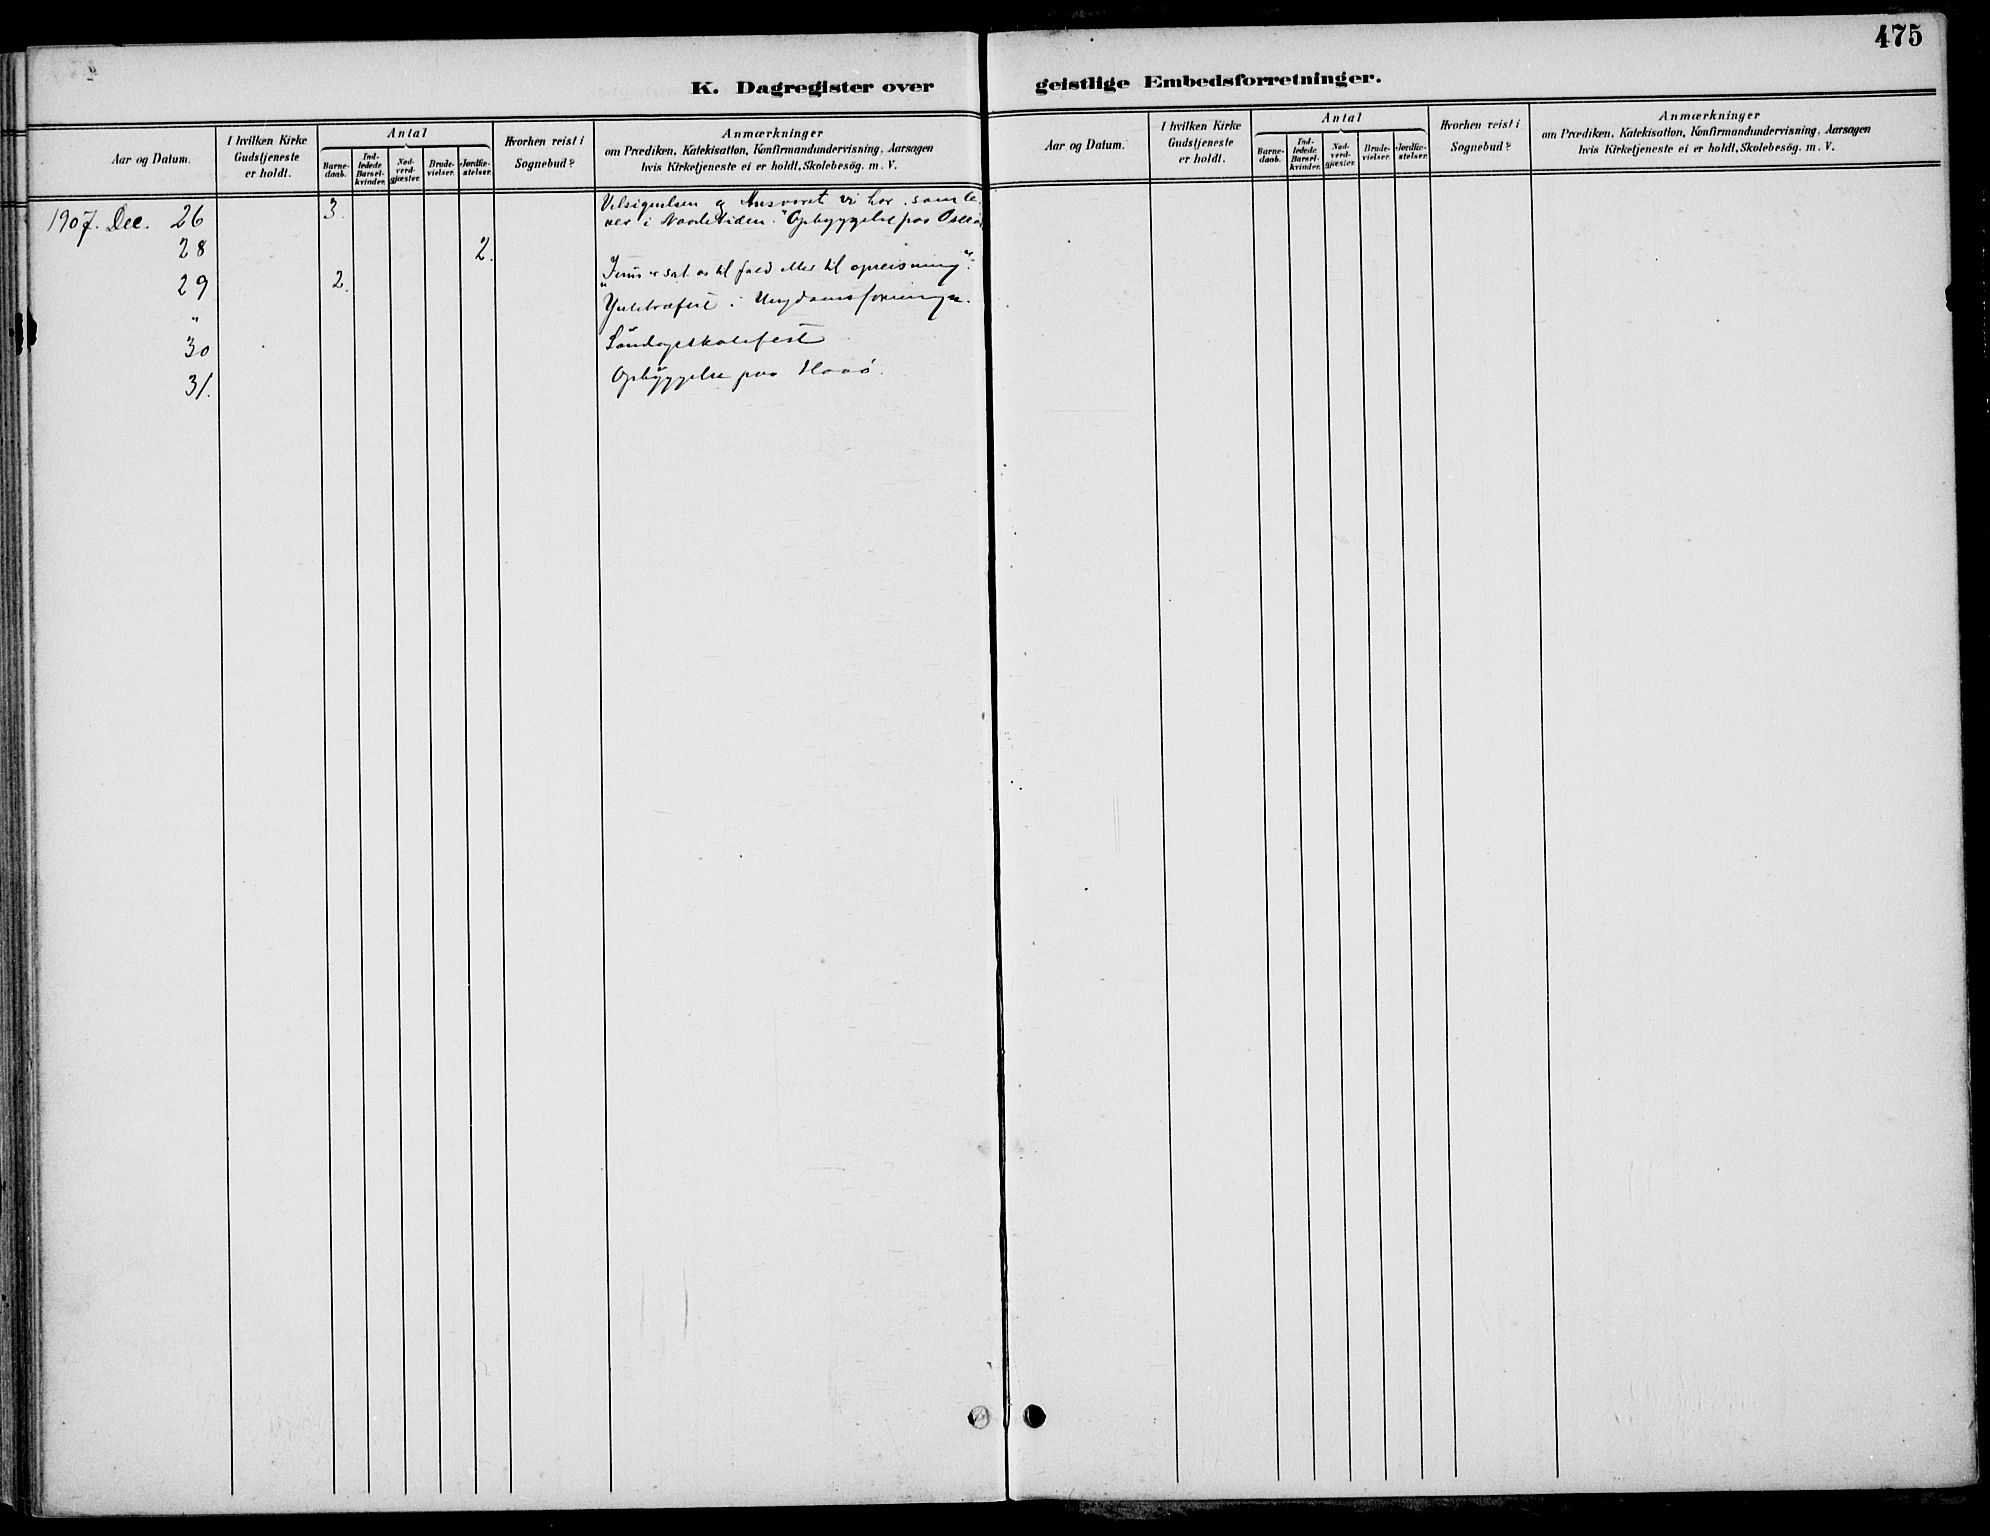 475
K. Dagregister over geistlige Embedsforretninger.
Aar og Datum.
I hvilken Kirke
Gudstjeneste
er holdt.
Antal
Barne-
daab.
Ind-
ledede
Barsel-
kvinder.
Nad-
verd-
gjæster.
Brude-
vielser.
Jordfæ-
stelser.
Hvorhen reist i
Sognebud?
Anmærkninger
om Prædiken, Katekisation, Konfirmandundervisning, Aarsagen
hvis Kirketjeneste ei er holdt, Skolebesög. m. V.
1907. Dec. 26 3. Velsignelsen og Ansvaret vi har som le-
ver i Naadetiden." Opbyggelse paa
28 2.
29 2. "Jesus er sat os til fald eller til opreisning".
" Juletræfest i Ungdomsforeningen.
30 Söndagsskolefest
31. Opbyggelse paa
Aar og Datum.
I hvilken Kirke
Gudstjeneste
er holdt.
Antal
Barne-
daab.
Ind-
ledede
Barsel-
kvinder.
Nad-
verd-
gjæster.
Brude-
vielser.
Jordfæ-
stelser.
Hvorhen reist i
Sognebud?
Anmærkninger
om Prædiken, Katekisation, Konfirmandundervisning, Aarsagen
hvis Kirketjeneste ei er holdt, Skolebesög. m. V.